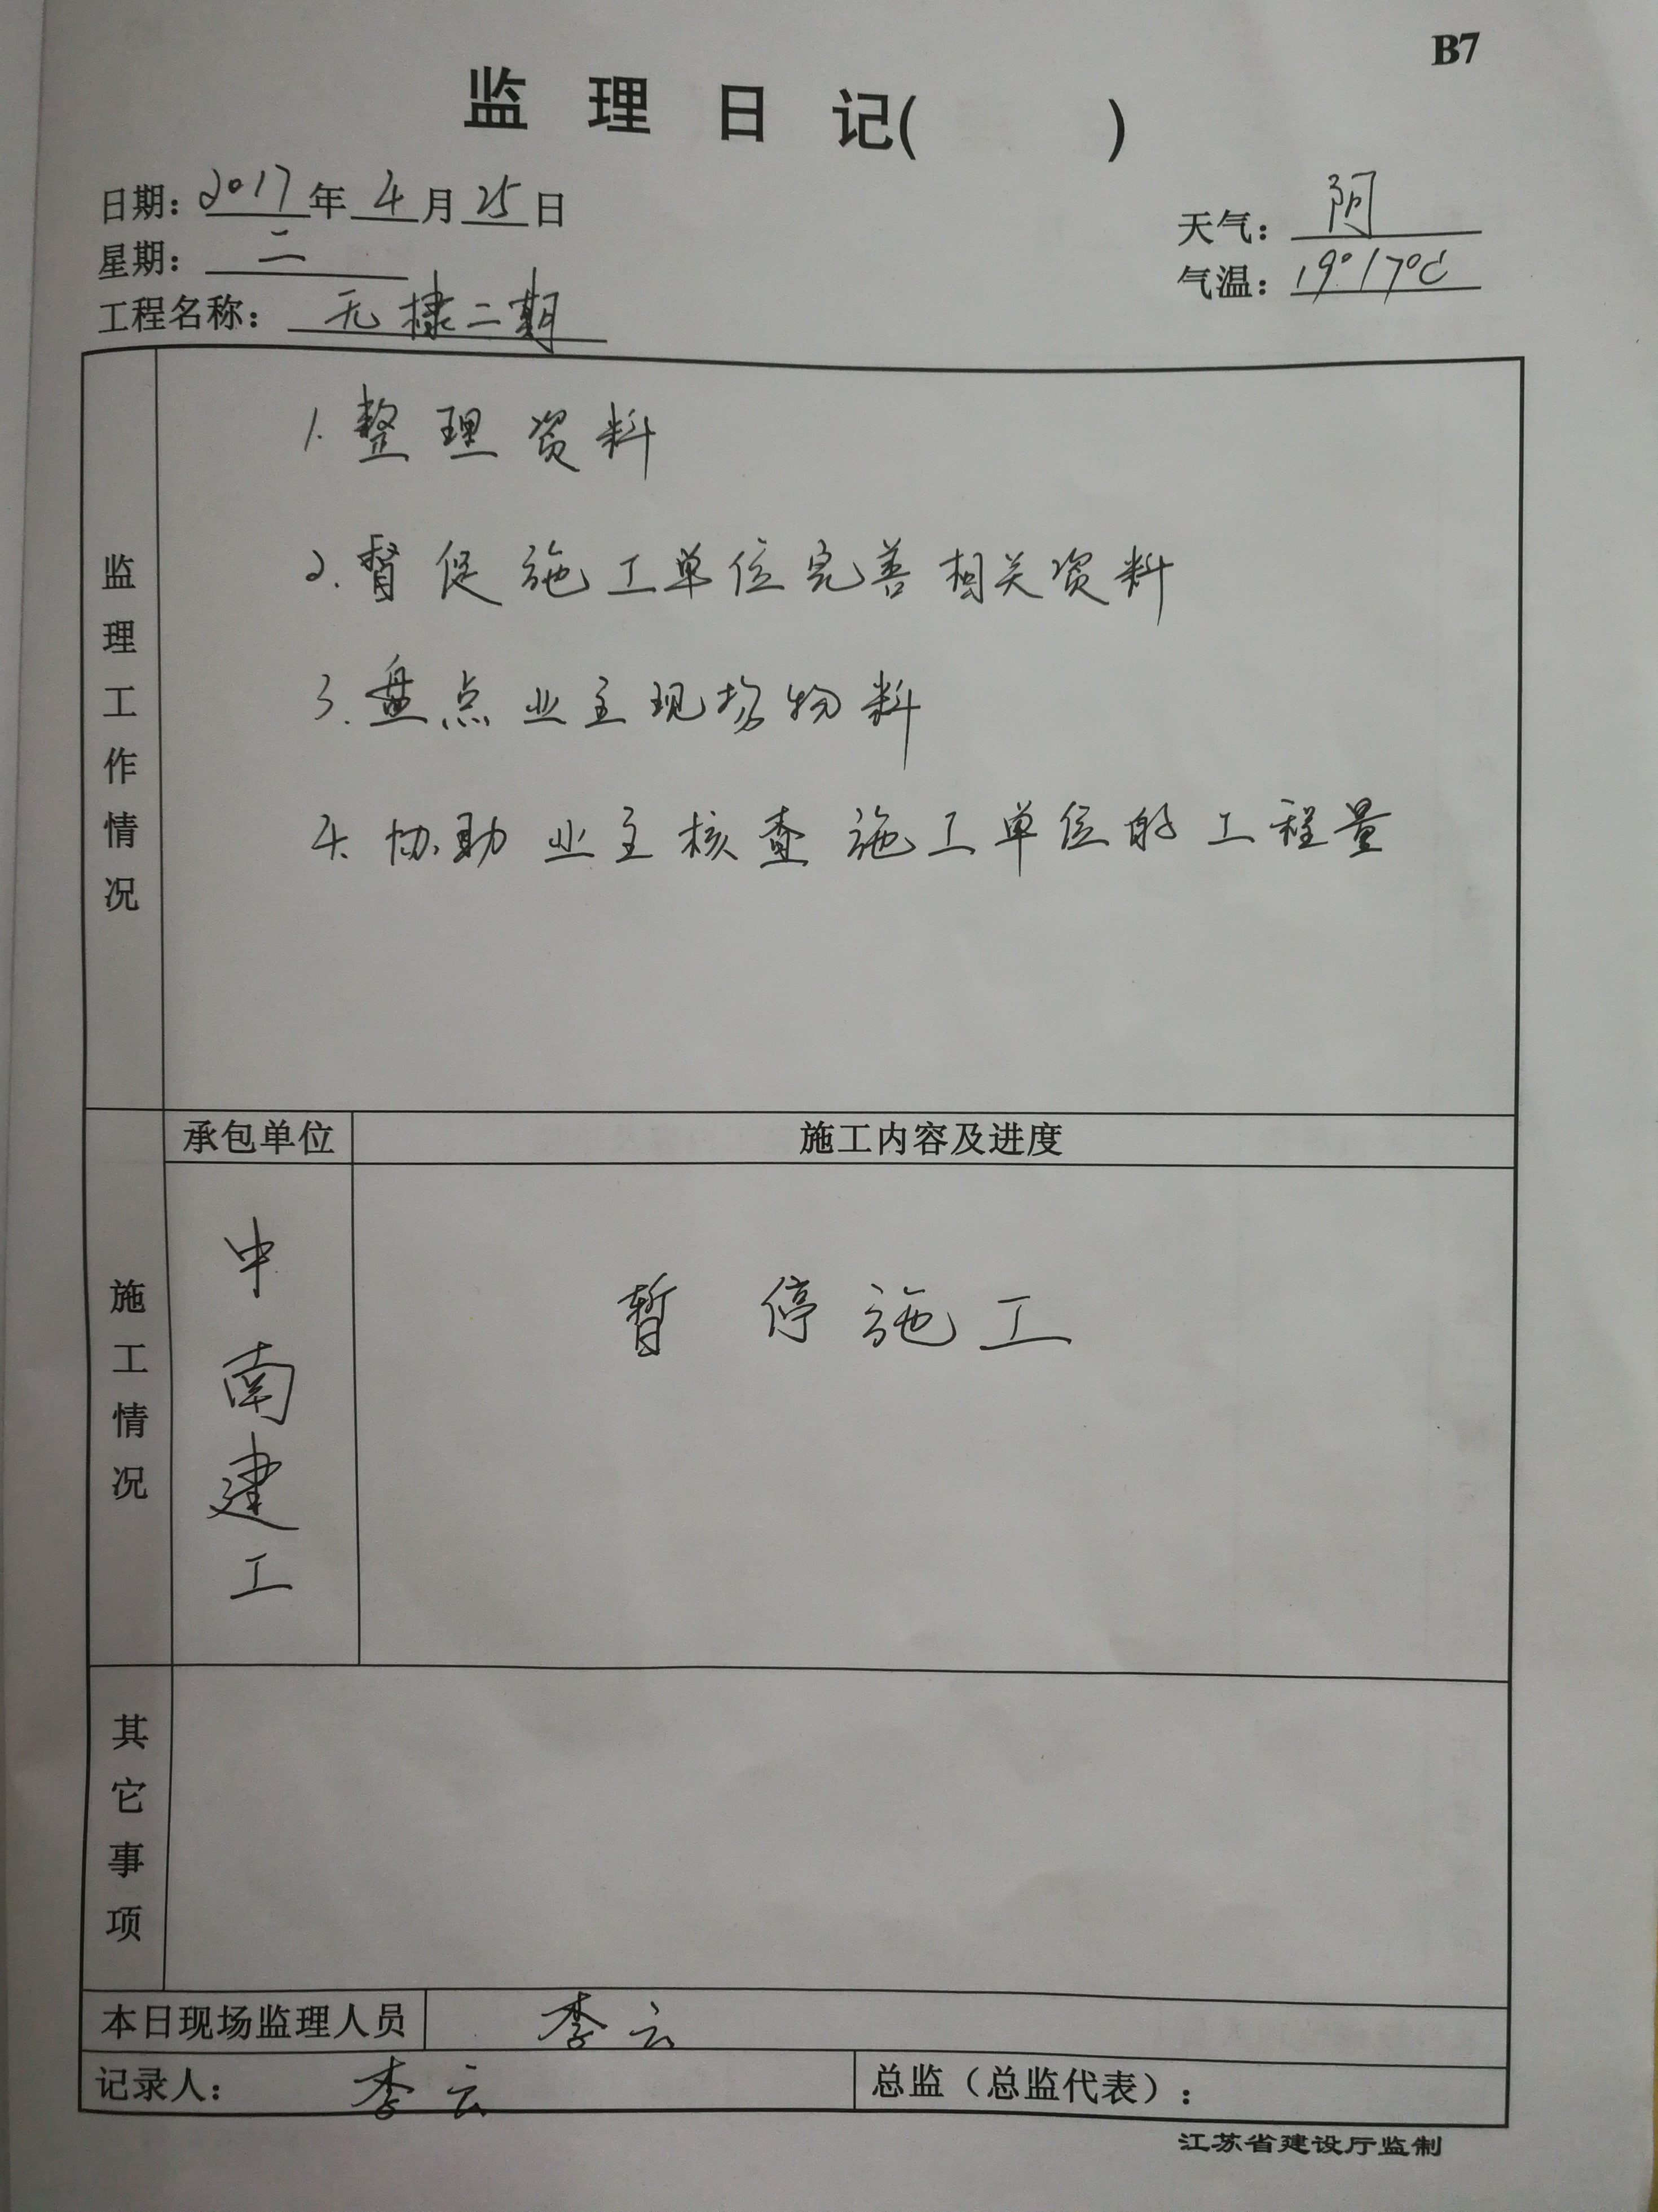 B7
监理日记(　　)
日期：2017年4月25日
天气：阴
星期：二
气温：19°17℃
工程名称：无棣二期
监理工作情况
1.整理资料
2.督促施工单位完善相关资料
3.盘点业主现场物料
4.协助业主核查施工单位的工程量
承包单位
施工内容及进度
施工情况
中南建工
暂停施工
其它事项
本日现场监理人员 李云
记录人：李云
总监（总监代表）：
江苏省建设厅监制